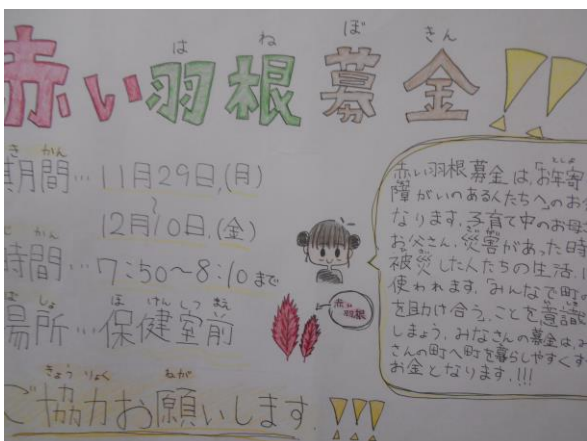 赤い羽根募金!!
はね ぼきん
期間…11月29日(月)
きかん
~
12月10日(金)
時間…7:50~8:10まで
じかん
場所…保健室前
ばしょ ほけんしつまえ
ご協力お願いします。!!!
きょうりょく ねが
赤い羽根
赤い羽根募金は、「お年寄
障がいのある人たちへ」のお
なります。子育て中のお母
お父さん、災害があった時
被災した人たちの生活
使われます。「みんなで町の
を助け合う」ことを意識
しましょう。みなさんの募金は、み
さんの町へ町を暮らしやすくす
お金となります。!!!